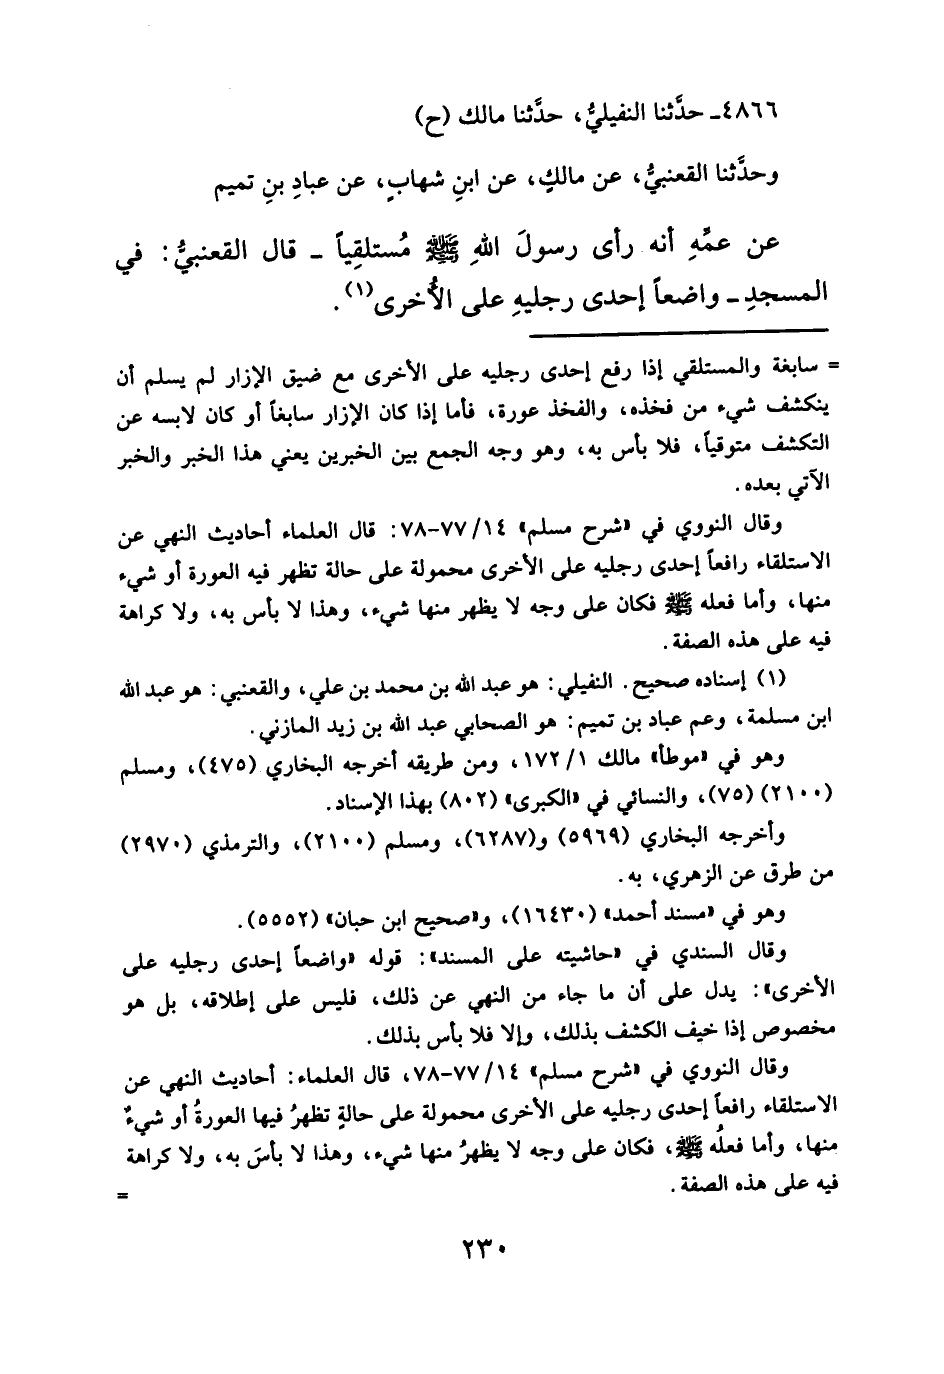 ٤٨٦٦ـ حدَّثنا النفيليُّ، حدَّثنا مالك (ح)
وحدَّثنا القعنبيُّ، عن مالكٍ، عن ابنِ شهابٍ، عن عبادِ بنِ تميم
عن عمِّهِ أنه رأى رسولَ اللهِ ﷺ مُستلقِياً ـ قال القعنبيُّ: في
المسجدِ ـ واضعاً إحدى رجليهِ على الأُخرى(١).
= سابغة والمستلقي إذا رفع إحدى رجليه على الأخرى مع ضيق الإزار لم يسلم أن
ينكشف شيء من فخذه، والفخذ عورة، فأما إذا كان الإزار سابغاً أو كان لابسه عن
التكشف متوقياً، فلا بأس به، وهو وجه الجمع بين الخبرين يعني هذا الخبر والخبر
الآتي بعده.
وقال النووي في «شرح مسلم» ١٤/ ٧٧-٧٨: قال العلماء أحاديث النهي عن
الاستلقاء رافعاً إحدى رجليه على الأخرى محمولة على حالة تظهر فيه العورة أو شيء
منها، وأما فعله ﷺ فكان على وجه لا يظهر منها شيء، وهذا لا بأس به، ولا كراهة
فيه على هذه الصفة.
(١) إسناده صحيح. النفيلي: هو عبد الله بن محمد بن علي، والقعنبي: هو عبد الله
ابن مسلمة، وعم عباد بن تميم: هو الصحابي عبد الله بن زيد المازني.
وهو في «موطأ» مالك ١/ ١٧٢، ومن طريقه أخرجه البخاري (٤٧٥)، ومسلم
(٢١٠٠) (٧٥)، والنسائي في «الكبرى» (٨٠٢) بهذا الإسناد.
وأخرجه البخاري (٥٩٦٩) و(٦٢٨٧)، ومسلم (٢١٠٠)، والترمذي (٢٩٧٠)
من طرق عن الزهري، به.
وهو في «مسند أحمد» (١٦٤٣٠)، و«صحيح ابن حبان» (٥٥٥٢).
وقال السندي في «حاشيته على المسند»: قوله «واضعاً إحدى رجليه على
الأخرى»: يدل على أن ما جاء من النهي عن ذلك، فليس على إطلاقه، بل هو
مخصوص إذا خيف الكشف بذلك، وإلا فلا بأس بذلك.
وقال النووي في «شرح مسلم» ١٤/ ٧٧-٧٨، قال العلماء: أحاديث النهي عن
الاستلقاء رافعاً إحدى رجليه على الأخرى محمولة على حالةٍ تظهرُ فيها العورةُ أو شيءٌ
منها، وأما فعلُه ﷺ، فكان على وجه لا يظهرُ منها شيء، وهذا لا بأسَ به، ولا كراهة
فيه على هذه الصفة. =
٢٣٠